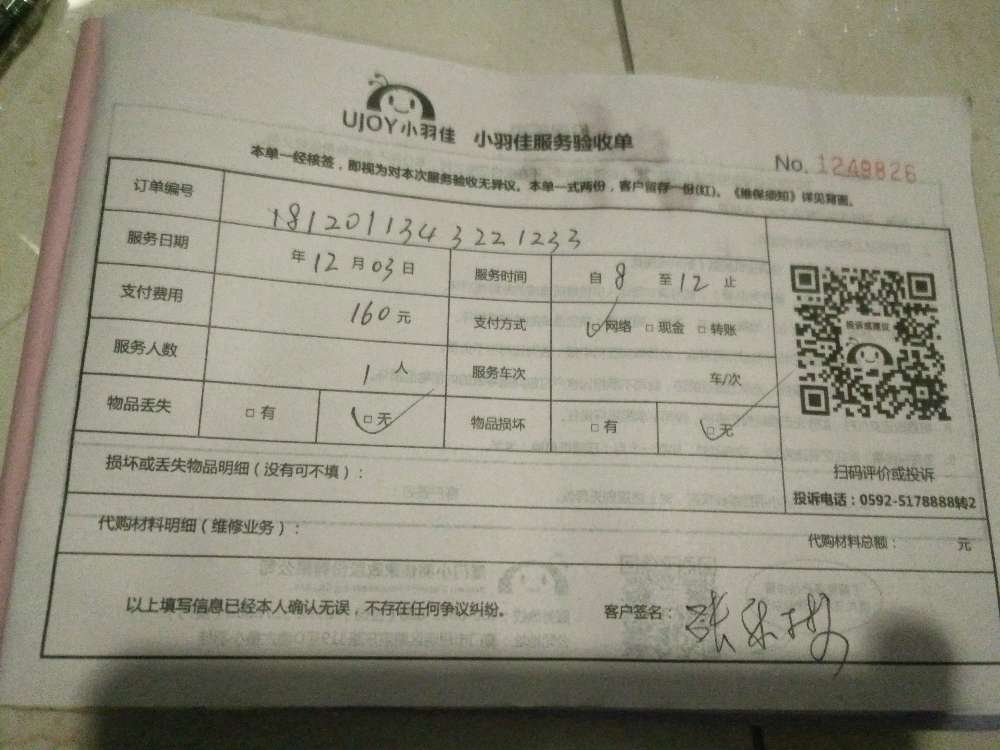 UJOY小羽佳 小羽佳服务验收单
No. 1249826
本单一经核签，即视为对本次服务验收无异议。本单一式两份，客户留存一份(红)。《维保须知》详见背面。
订单编号 1812011343221233
服务日期 年12月03日 服务时间 自8至12止
支付费用 160元 支付方式 □网络 □现金 □转账
服务人数 1人 服务车次 车/次
物品丢失 □有 □无 物品损坏 □有 □无
投诉或建议
扫码评价或投诉
投诉电话：0592-5178888转2
损坏或丢失物品明细（没有可不填）：
代购材料明细（维修业务）： 代购材料总额： 元
以上填写信息已经本人确认无误，不存在任何争议纠纷。 客户签名：张